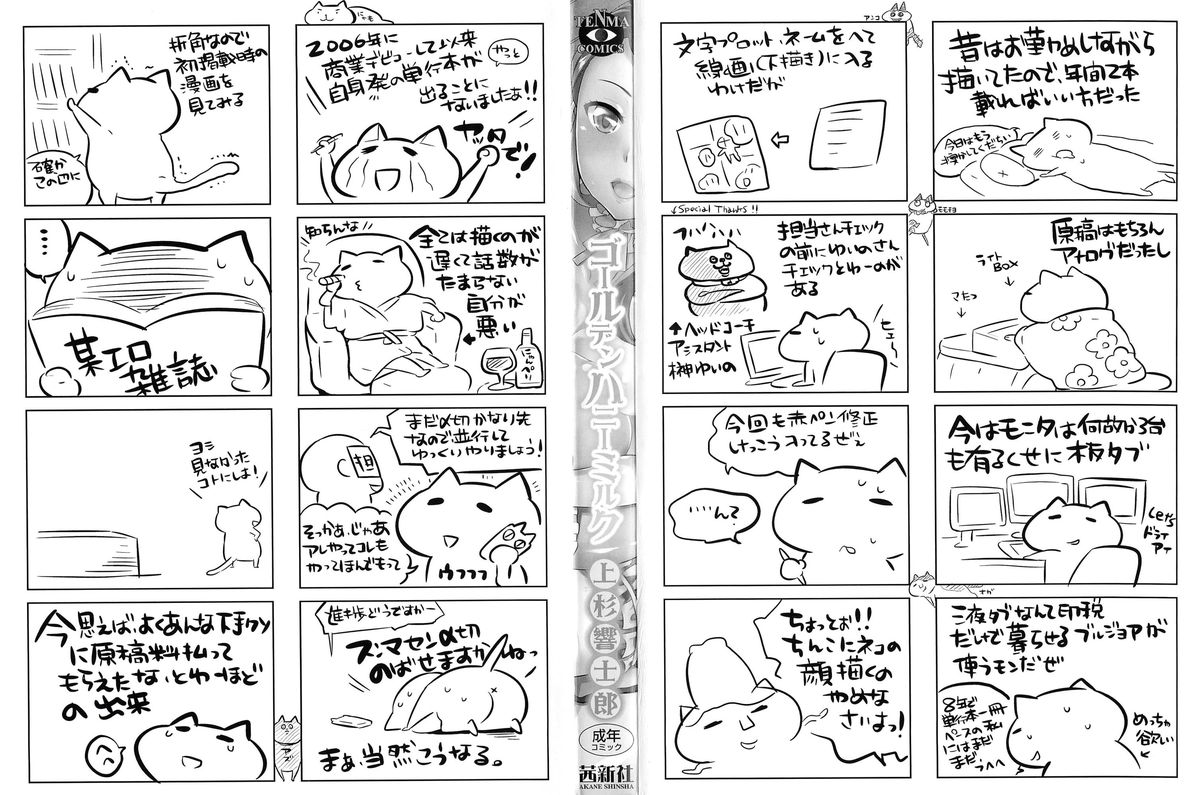 にゃも
2006年に
商業デビューして以来
やっと
自身発の単行本が
出ることに
ないましたぁ!!
ヤッタ
で!
知ちんな
全ては描くのが
遅くて話数が
たまらない
自分が
悪い
にゃんぺり
まだ〆切かなり先
なので並行して
ゆっくりやりましょう!
担
そっかぁ、じゃあ
アレやってコレも
やってほんでもって
ウフフフ
進捗どうですかー
スンマセン〆切
のばせますかねっ
まぁ、当然こうなる。
折角なので
初掲載時の
漫画を
見てみる
確か
この辺に
…
某エロ
雑誌
ヨシ
見なかった
コトにしよ!
今思えば、よくあんな下手クソ
に原稿料払って
もらえたな、とゆーほど
の出来
へへ
TENMA
COMICS
ゴールデンハニーミルク
上杉響士郎
成年
コミック
茜新社
AKANE SHINSHA
アンコ
昔はお勤めしながら
描いてたので、年間2本
載ればいい方だった
今日はもう
寝かしてくだちい
モモチヨ
原稿はもちろん
アナログだったし
ライト
BOX
こたつ
今はモニタは何故か3台
も有るくせに板タブ
くせぢら
ドライ
アイ
さが
液タブなんて印税
だけで暮らせるブルジョアが
使うモンだぜ
8年で
単行本一冊
ペースの私
にはまだ
まだうへへ
めっちゃ
欲しい
文字プロット、ネームをへて
線画(下描き)に入る
わけだが
↓Special Thanks!!
担当さんチェック
の前にゆいのさん
チェックとゆーのが
ある
↑ヘッドコーチ
アシスタント
榊ゆいの
ヒェ〜
今回も赤ペン修正
けっこう入ってるぜぇ
……んで
ちょっとお!!
ちんこにネコの
顔描くの
やめな
さいよっ!